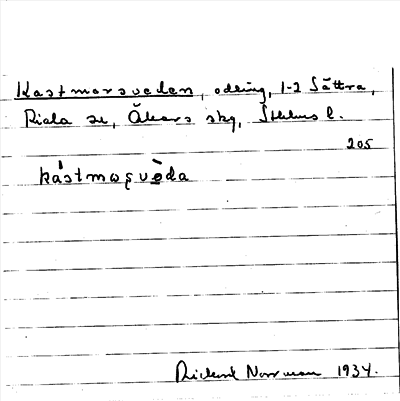 Kastmorsveden, odling, 1-2 Sättra,
Riala sn, Åkers skg, Sthlms l.
205
kástmaʂvèda
Rickard Norrman 1934.